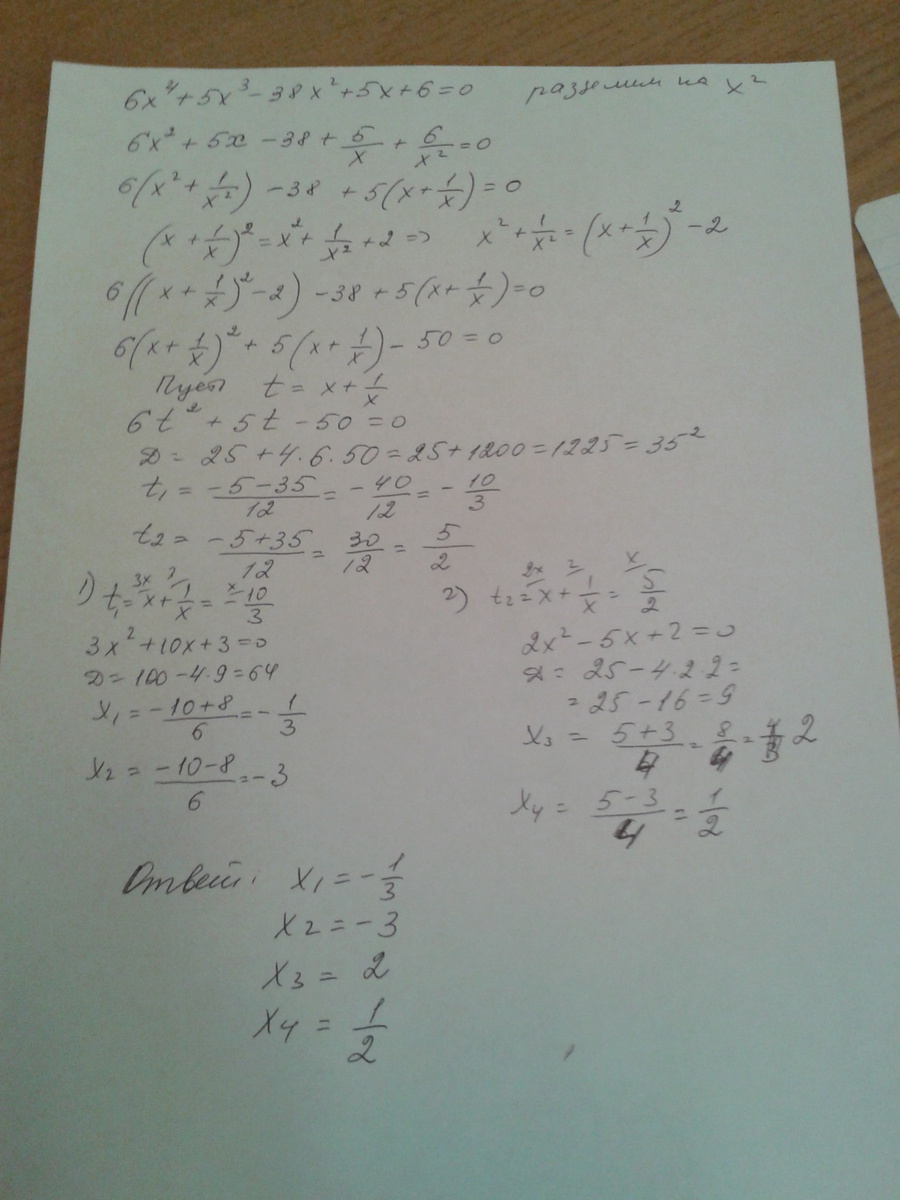 6x⁴+5x³-38x²+5x+6=0 разделим на x²
6x²+5x-38+5/x+6/x²=0
6(x²+1/x²)-38+5(x+1/x)=0
(x+1/x)²=x²+1/x²+2 => x²+1/x²=(x+1/x)²-2
6((x+1/x)²-2)-38+5(x+1/x)=0
6(x+1/x)²+5(x+1/x)-50=0
Пусть t=x+1/x
6t²+5t-50=0
D=25+4·6·50=25+1200=1225=35²
t₁=(-5-35)/12=-40/12=-10/3
t₂=(-5+35)/12=30/12=5/2
1) t₁=x+1/x=-10/3
3x²+10x+3=0
D=100-4·9=64
x₁=(-10+8)/6=-1/3
x₂=(-10-8)/6=-3
2) t₂=x+1/x=5/2
2x²-5x+2=0
D=25-4·2·2=
=25-16=9
x₃=(5+3)/4=8/4=2
x₄=(5-3)/4=1/2
Ответ: x₁=-1/3
x₂=-3
x₃=2
x₄=1/2